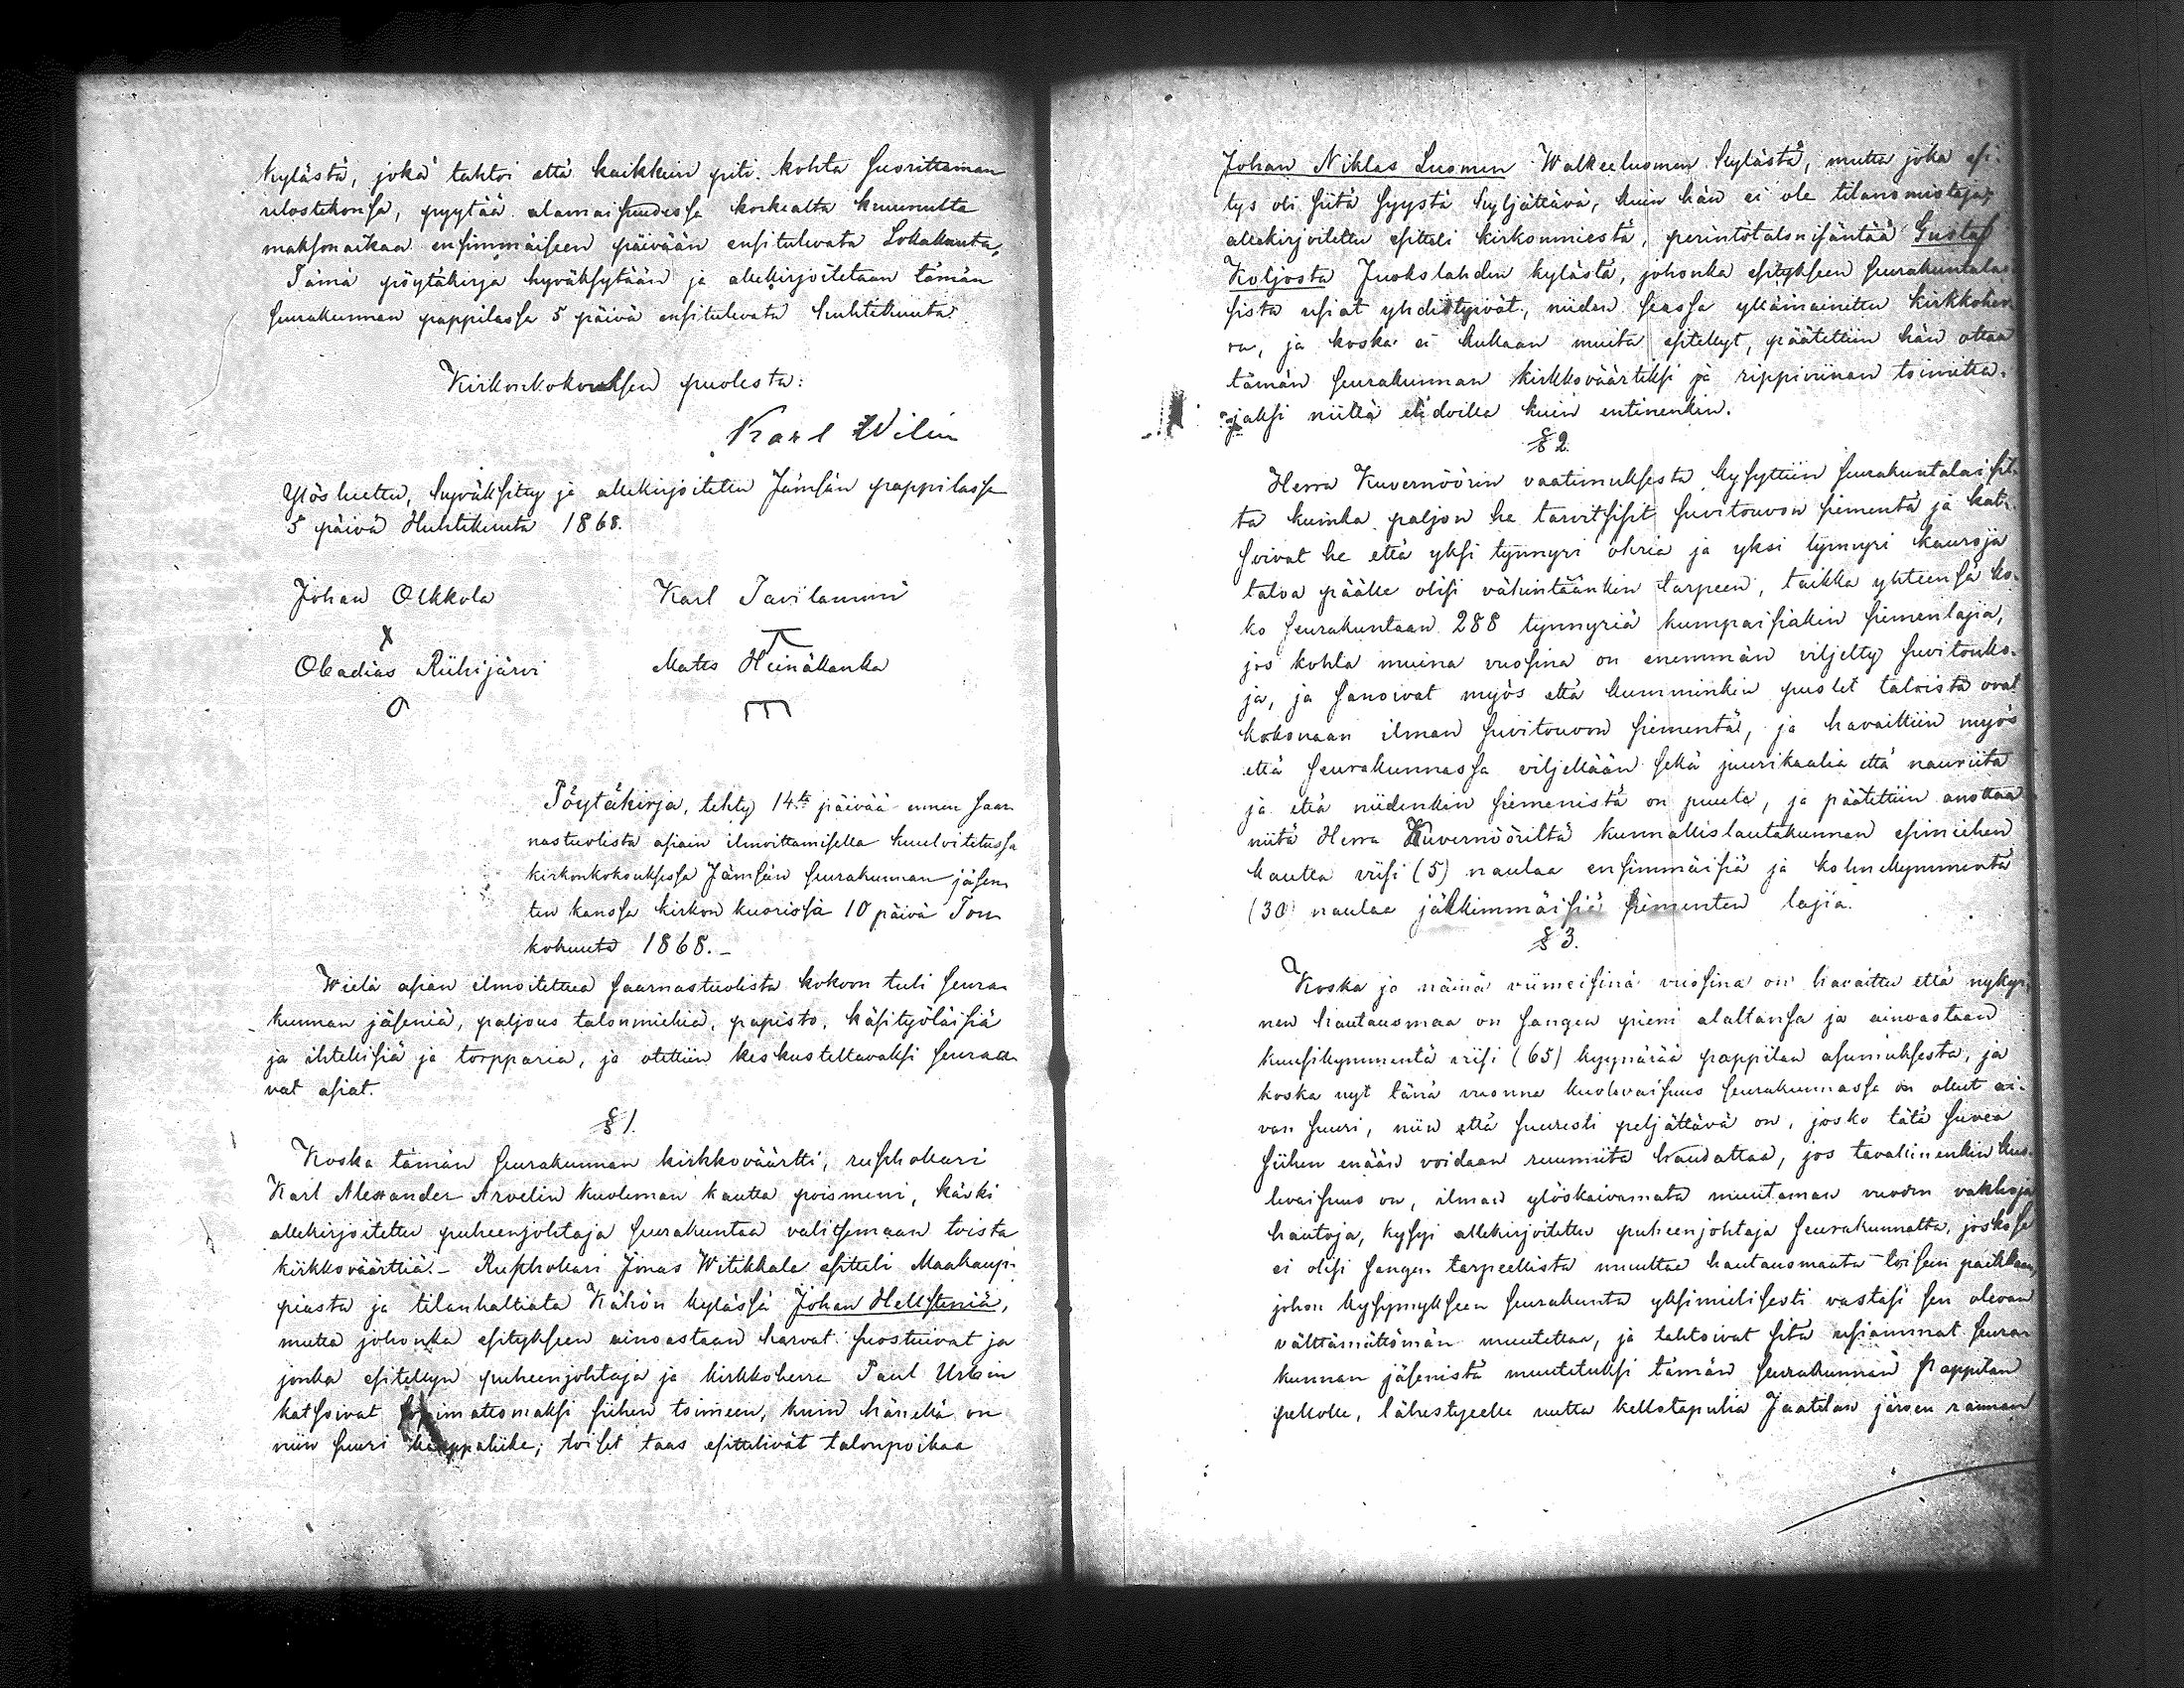 kylästä, joka tahtoi että kaikkein piti kohta suorittaman
ulostekonsa, pyytää alamaisuudessa korkealta kruunulta
maksonaikaa ensimmäiseen päivään ensitulevata Lokakuuta.
Tämä pöytäkirja hyväksytään ja allekirjoitetaan tämän
seurakunnan pappilassa 5 päivä ensitulevata huhtikuuta.
Kirkonkokouksen puolesta:
Karl Wilén
Ylösluettu, hyväksytty ja allekirjoitettu Jämsän pappilassa
5 päivä Huhtikuuta 1868.
Johan Olkkola Karl Tavilammi
Obadias Riihijärvi Mats Heinälanka
Pöytäkirja, tehty 14ta päivää ennen saar-
nastuolista asiain ilmoittamisella kuuloitetussa
kirkonkokouksessa Jämsän seurakunnan jäsen-
ten kanssa kirkon kuorissa 10 päivä Tou-
kokuuta 1868.-
Wielä asian ilmoitettua saarnastuolista kokoon tuli seura-
kunnan jäseniä, paljous talonmiehiä, papisto, käsityöläisiä
ja ihtelisiä ja torpparia, ja otettiin keskusteltavaksi seuraa-
vat asiat.
§ 1.
Koska tämän seurakunnan kirkkoväärtti, rusthollari
Karl Alexander Arvelin kuoleman kautta poismeni, käski
allekirjoitettu puheenjohtaja seurakuntaa valitsemaan toista
kirkkoväärttiä.- Rusthollari Jonas Witikkala esitteli Maakaup-
piasta ja tilanhaltiata Kähön kylässä Johan Hellsteniä,
mutta johonka esitykseen ainoastaan harvat suostuivat ja
jonka esitellyn puheenjohtaja ja kirkkoherra Paul Urbin
katsoivat sopimattomaksi siihen toimeen, kuin hänellä on
niin suuri kauppaliike; toiset taas esittelivät talonpoikaa
Johan Niklas Luomen Walkeeluomen kylästä, mutta joka esi-
tys oli siitä syystä hyljättävä, kuin hän ei ole tilanomistaja;
allekirjoitettu esitteli kirkonmiestä, perintötalonisäntää Gustaf
Koljosta Juokslahden kylästä, johonka esitykseen seurakuntalai-
sista usiat yhdistyivät, niiden seassa ylläinainittu kirkkoher-
ra, ja koska ei kukaan muita esitellyt, päätettiin hän ottaa
tämän seurakunnan kirkkoväärtiksi ja rippiviinan toimitta-
jaksi niillä ehdoilla kuin entinenkin.
§ 2.
Herra Kuvernöörin vaatimuksesta kysyttiin seurakuntalaisil-
ta kuinka paljon he tarvitsisit suvitouvon siementä ja kat-
soivat he että yksi tynnyri ohria ja yksi tynnyri kauroja
taloa päälle olisi vähintäänkin tarpeen, taikka yhteensä ko-
ko seurakuntaan 288 tynnyriä kumpaisiakin siemenlajia,
jos kohta muina vuosina on enemmän viljelty suvitouko-
ja, ja sanoivat myös että kumminkin puolet taloista ovat
kokonaan ilman suvitouvon siementä, ja havaittiin myös
että seurakunnassa viljellään sekä juurikaalia että nauriita
ja että niidenkin siemenistä on puute, ja päätettiin anottaa
niitä Herra Kuvernööriltä kunnallislautakunnan esimiehen
kautta viisi (5) naulaa ensimmäisiä ja kolmekymmentä
(30) naulaa jälkimmäisiä siementen lajia.
§ 3.
Koska jo näinä viimeisinä vuosina on havaittu että nykyi-
nen hautausmaa on sangen pieni alaltansa ja ainoastaan
kuusikymmentä viisi (65) kyynärää pappilan asumuksesta, ja
koska nyt tänä vuonna kuolevaisuus seurakunnassa on ollut ai-
van suuri, niin että suuresti peljättävä on, josko tätä suvea
siihen enään voidaan ruumiita haudattaa, jos tavallinenkin kuo-
levaisuus on, ilman ylöskaivamata muutaman vuoden vanhoja
hautoja, kysyi allekirjoitettu puheenjohtaja seurakunnalta, josko se
ei olisi sangen tarpeellista muuttaa hautausmaata toiseen paikkaan,
johon kysymykseen seurakunta yksimielisesti vastasi sen olevan
välttämättömän muutettaa, ja tahtoivat sitä usiammat seura-
kunnan jäsenistä muutetuksi tämän seurakunnan Pappilan
pellolle, lähestyselle uutta kellotapulia Jaatilan järven rannan